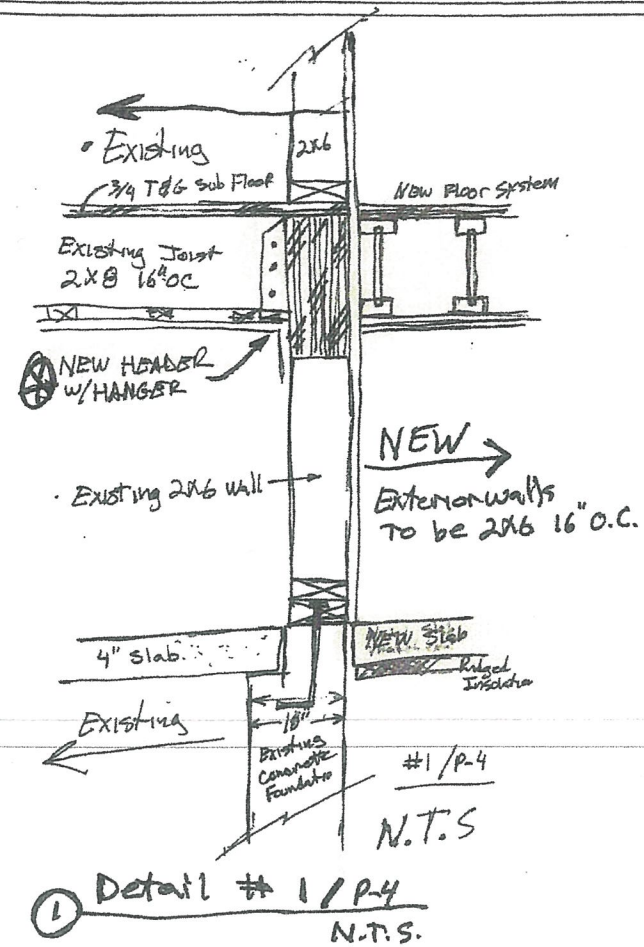 • Existing
2X6
3/4 T&G Sub Floor
New Floor System
Existing Joist
2X8 16"OC
NEW HEADER
W/HANGER
NEW
Exterior walls
To be 2X6 16" O.C.
• Existing 2X6 wall
4" Slab
NEW Slab
Ridged
Insolation
Existing
Existing
Concrete
Foundatio
#1/P-4
N.T.S
1 Detail # 1/P-4
N.T.S.